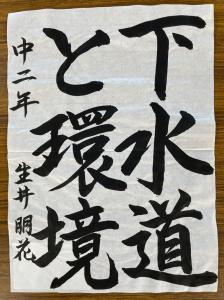 下水道
と環境
中二年 生井明花